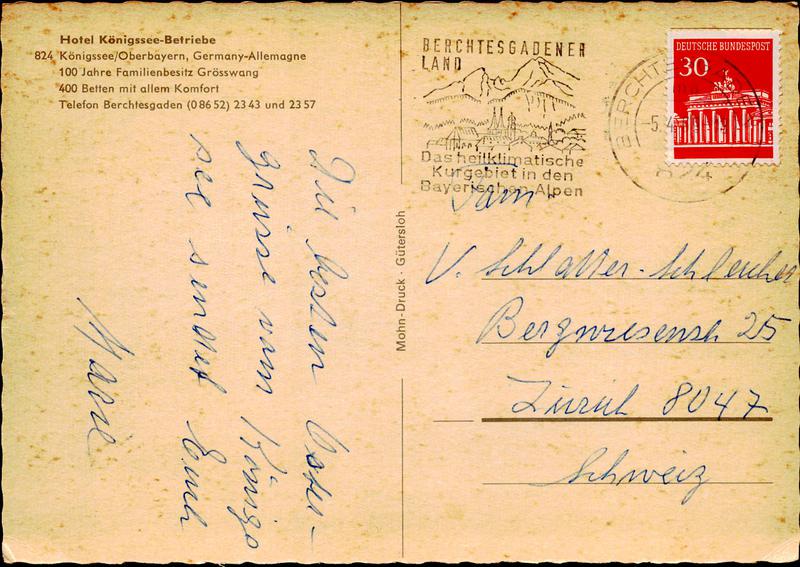 Hotel Königssee-Betriebe
824 Königssee/Oberbayern, Germany-Allemagne
100 Jahre Familienbesitz Grösswang
400 Betten mit allem Komfort
Telefon Berchtesgaden (0 86 52) 23 43 und 23 57
Die besten Oster-
grüsse vom Königs
see sendet Euch
Mohn-Druck · Gütersloh
BERCHTESGADENER
LAND
Das heilklimatische
Kurgebiet in den
Bayerischen Alpen
DEUTSCHE BUNDESPOST
30
BERCHTES
-5.4
824
Fam.
V. Schlatter-Schleicher
Bergwiesenstr 25
Zürich 8047
Schweiz